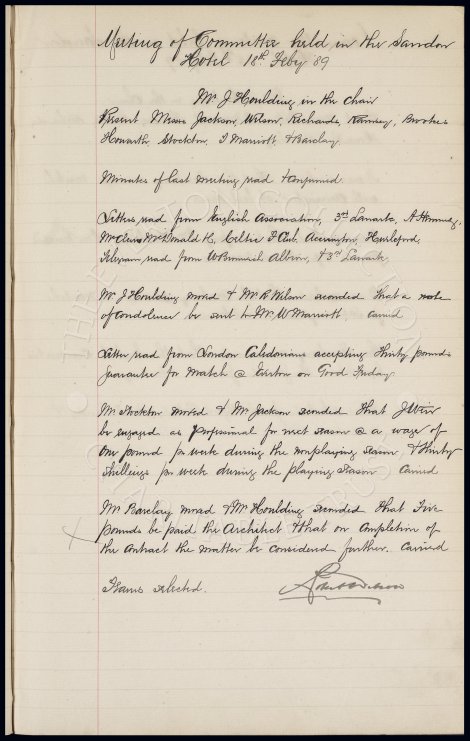 Meeting of Committee held in the Sandon
Hotel 18th Feby 89
Mr J Houlding in the chair
Present Messrs Jackson, Wilson, Richards, Ramsay, Brookes
Howarth, Stockton, J Marriott, & Barclay
Minutes of last meeting read & confirmed
Letters read from English Association, 3rd Lanark, A
McDonald Celtic F Club, Accrington, Hurlford,
Telegram read from W Bromwich Albion, & 3rd Lanark
Mr J Houlding moved & Mr R Wilson seconded that a note
of condolence be sent to Mr W Marriott, carried
Letter read from London Caledonians accepting thirty pounds
guarantee for match @ Everton on Good Friday
Mr Stockton moved & Mr Jackson seconded that J Weir
be engaged as Professional for next season @ a wage of
One pound per week during the nonplaying season, & thirty
shillings per week during the playing season carried
Mr Barclay moved & Mr Houlding seconded that Five
pounds be paid the Architect & that on completion of
the contract the matter be considered further. Carried
Teams selected.
Robt Wilson